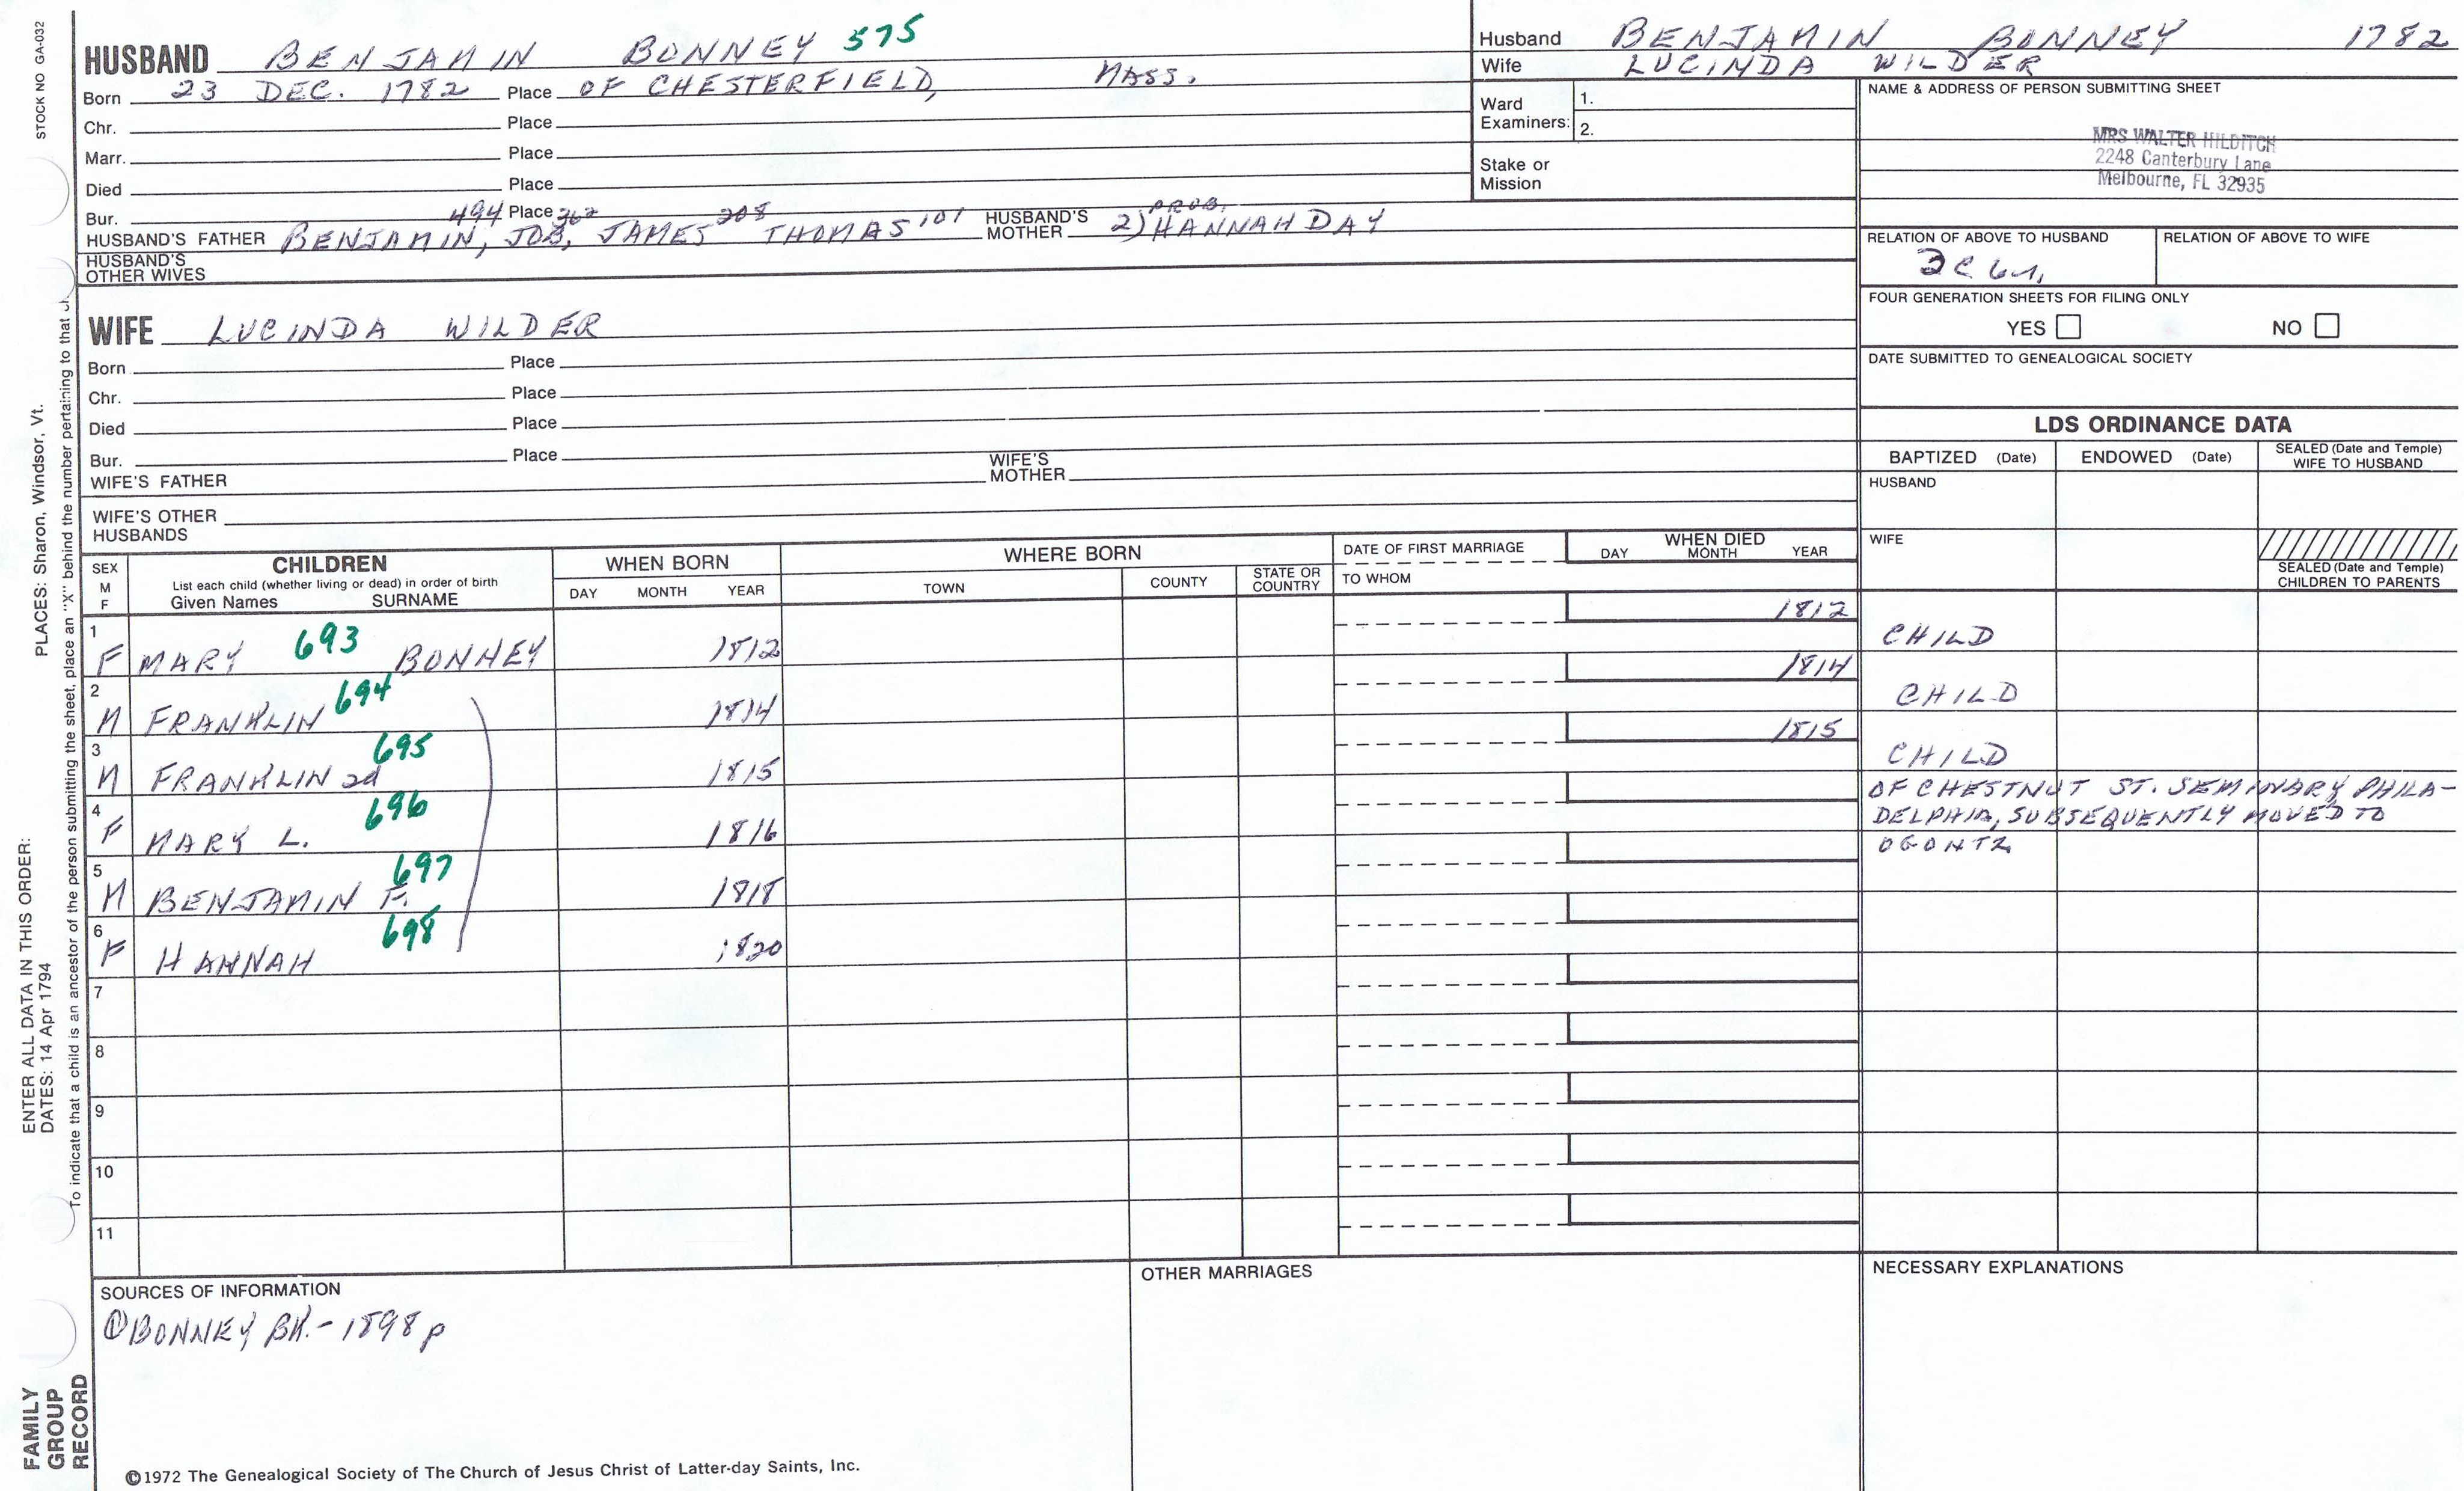 STOCK NO GA-032
PLACES: Sharon, Windsor, Vt.
ENTER ALL DATA IN THIS ORDER:
DATES: 14 Apr 1794
To indicate that a child is an ancestor of the person submitting the sheet, place an "X" behind the number pertaining to that
FAMILY GROUP RECORD
HUSBAND BENJAMIN BONNEY 575
Born 23 DEC. 1782 Place OF CHESTERFIELD, MASS.
Chr. Place
Marr. Place
Died Place
Bur. Place
494 362 208 101 PROB.
HUSBAND'S FATHER BENJAMIN, JOB, JAMES THOMAS HUSBAND'S MOTHER 2) HANNAH DAY
HUSBAND'S OTHER WIVES
WIFE LUCINDA WILDER
Born Place
Chr. Place
Died Place
Bur. Place
WIFE'S FATHER WIFE'S MOTHER
WIFE'S OTHER HUSBANDS
Husband BENJAMIN BONNEY 1782
Wife LUCINDA WILDER
Ward Examiners: 1.
2.
Stake or Mission
NAME & ADDRESS OF PERSON SUBMITTING SHEET
MRS WALTER HILDITCH
2248 Canterbury Lane
Melbourne, FL 32935
RELATION OF ABOVE TO HUSBAND RELATION OF ABOVE TO WIFE
FOUR GENERATION SHEETS FOR FILING ONLY
YES NO
DATE SUBMITTED TO GENEALOGICAL SOCIETY
LDS ORDINANCE DATA
BAPTIZED (Date) ENDOWED (Date) SEALED (Date and Temple) WIFE TO HUSBAND
HUSBAND
WIFE
SEALED (Date and Temple) CHILDREN TO PARENTS
SEX M F
CHILDREN
List each child (whether living or dead) in order of birth
Given Names SURNAME
WHEN BORN
DAY MONTH YEAR
WHERE BORN
TOWN COUNTY STATE OR COUNTRY
DATE OF FIRST MARRIAGE
TO WHOM
WHEN DIED
DAY MONTH YEAR
1 F MARY 693 BONNEY 1812 1812 CHILD
2 M FRANKLIN 694 1814 1814 CHILD
3 M FRANKLIN 2d 695 1815 1815 CHILD
4 F MARY L. 696 1816 OF CHESTNUT ST. SEMINARY PHILA-
DELPHIA, SUBSEQUENTLY MOVED TO
OGONTZ
5 M BENJAMIN F. 697 1818
6 F HANNAH 698 1820
7
8
9
10
11
SOURCES OF INFORMATION
① BONNEY BK. - 1898 p
OTHER MARRIAGES
NECESSARY EXPLANATIONS
©1972 The Genealogical Society of The Church of Jesus Christ of Latter-day Saints, Inc.